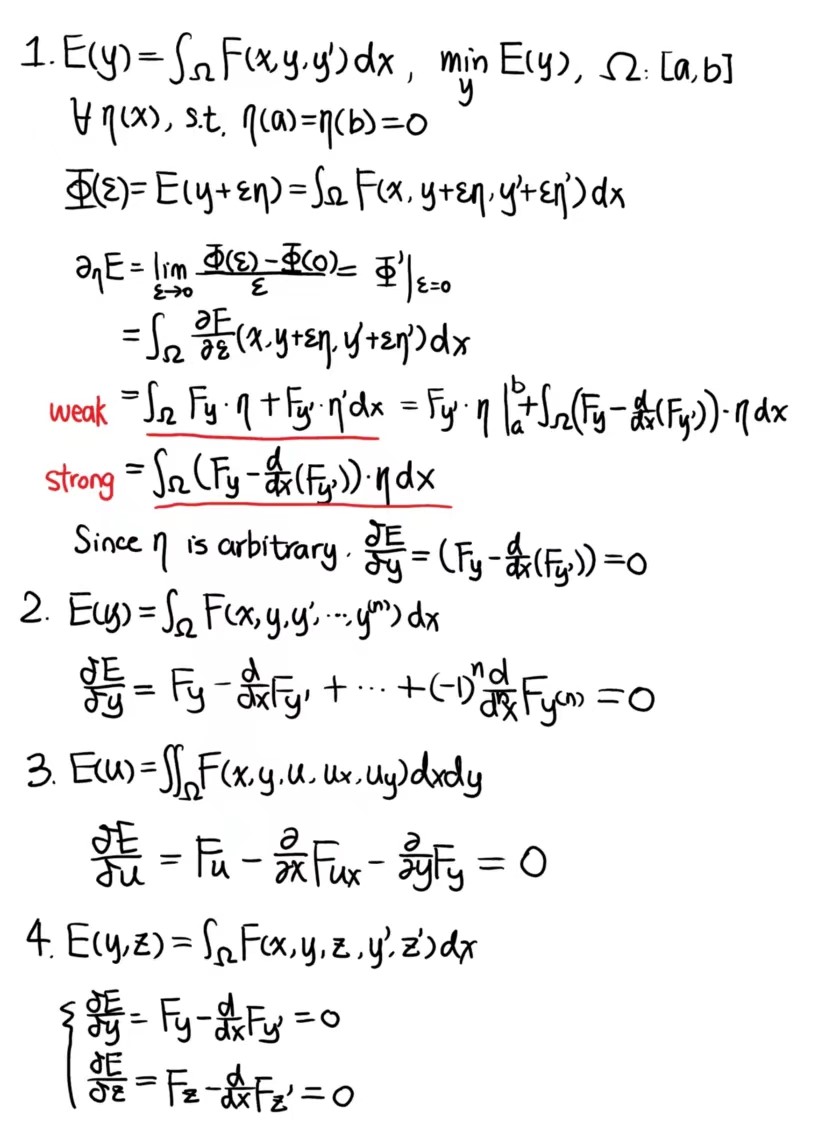 1. E(y) = ∫_Ω F(x, y, y') dx, min_y E(y), Ω: [a, b]
∀ η(x), s.t. η(a) = η(b) = 0
Φ(ε) = E(y+εη) = ∫_Ω F(x, y+εη, y'+εη') dx
∂_η E = lim_{ε→0} (Φ(ε) − Φ(0))/ε = Φ'|_{ε=0}
= ∫_Ω ∂F/∂ε (x, y+εη, y'+εη') dx
weak = ∫_Ω F_y · η + F_{y'} · η' dx = F_{y'} · η |_a^b + ∫_Ω (F_y − d/dx(F_{y'})) · η dx
strong = ∫_Ω (F_y − d/dx(F_{y'})) · η dx
Since η is arbitrary. δE/δy = (F_y − d/dx(F_{y'})) = 0
2. E(y) = ∫_Ω F(x, y, y', ..., y^{(n)}) dx
δE/δy = F_y − d/dx F_{y'} + ··· + (−1)^n d/d^n x F_{y^{(n)}} = 0
3. E(u) = ∬_Ω F(x, y, u, u_x, u_y) dxdy
δE/δu = F_u − ∂/∂x F_{u_x} − ∂/∂y F_y = 0
4. E(y, z) = ∫_Ω F(x, y, z, y', z') dx
{ δE/δy = F_y − d/dx F_{y'} = 0
δE/δz = F_z − d/dx F_{z'} = 0